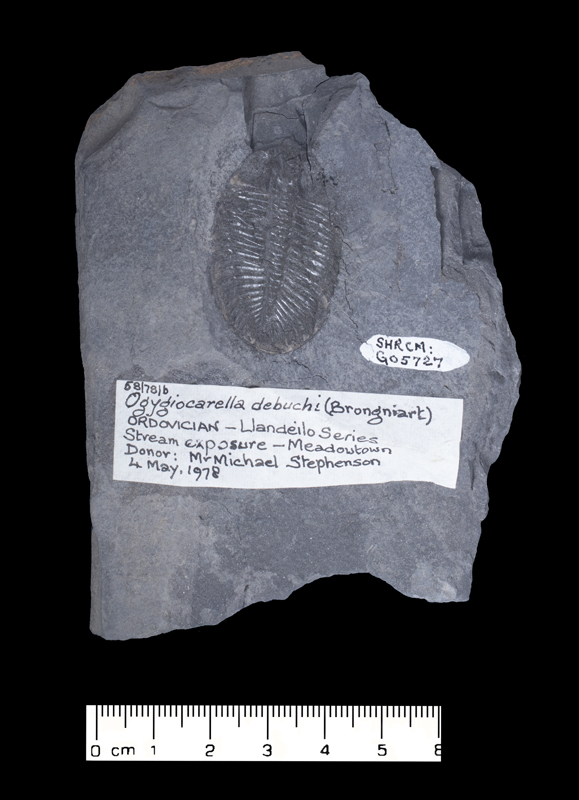 SHRCM:
G05727
68/78/b
Ogygiocarella debuchi (Brongniart)
ORDOVICIAN - Llandeilo Series
Stream exposure - Meadowtown
Donor: Mr Michael Stephenson
4 May, 1978
0 cm 1 2 3 4 5 6 7 8